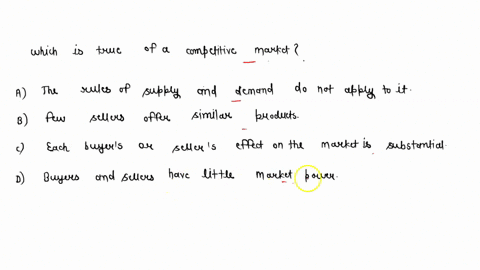 which is true of a competitive market?
A) The rules of supply and demand do not apply to it.
B) few sellers offer similar products.
C) Each buyer's or seller's effect on the market is substantial.
D) Buyers and sellers have little market power.